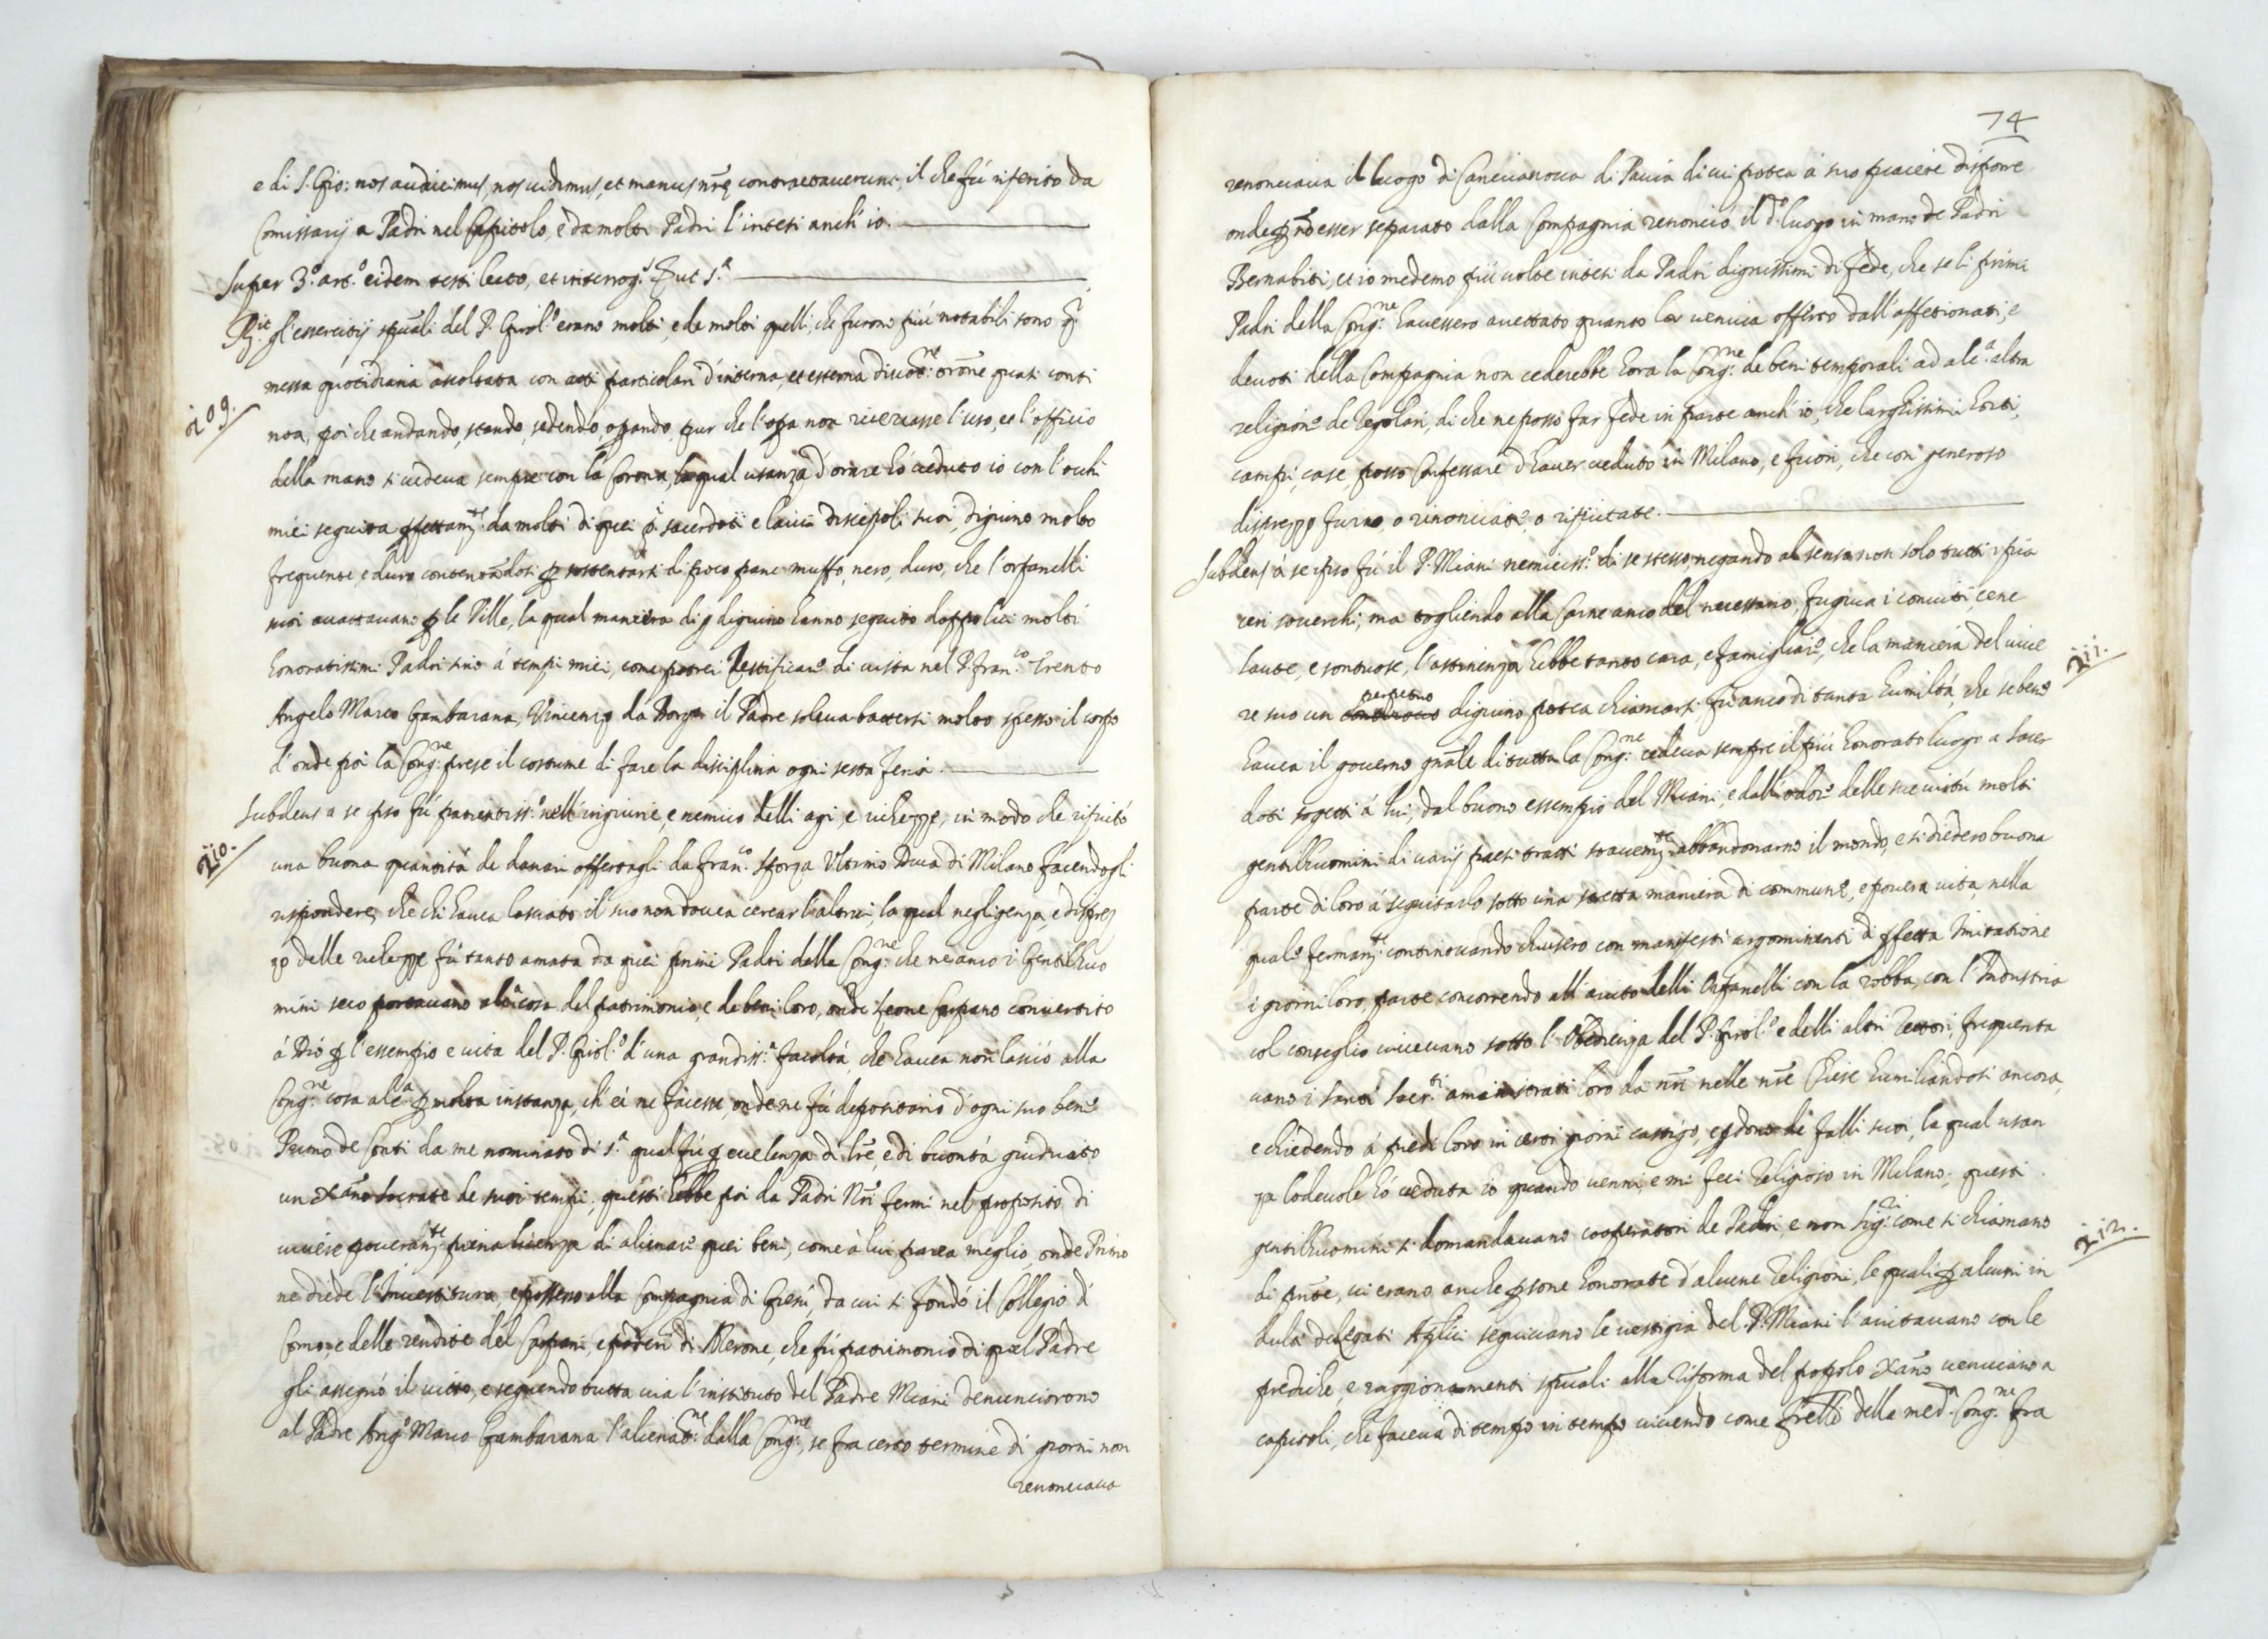 e di S. Gio: nos audivimus, nos vidimus, et manus nrę contractaverunt, il che fú riferito da
Comissarij a Padri nel Capitolo, e da molti Padri l'intesi anch'io.
Super 3.º art.º eidem testi lecto, et interrog.º Put s.ª
109.
Rit gl'essercitij spūali del P. Girol.º erano molti, e da molti quelli, che furono piú notabili sono
messa quotidiana ascoltata con atti particolari d'interna, et esterna divot:ne orōne quasi conti
noa, poi che andando, stando, sedendo, opando, pur che l'opa non ricercasse l'uso, et l'officio
della mano si vedeva sempre con la Corona, la qual usanza d'orare hó veduto io con l'occhi
miei seguita pfettamte da molti di quei pi sacerdoti e laici discepoli suoi, digiuno molto
frequente, e duro contentādosi p sostentarsi di poco pane muffo, nero, duro, che l'orfanelli
suoi avattavano p le Ville, la qual maniera di digiuno hanno seguito doppo lui molti
honoratissimi Padri sino á tempi miei, come potrei testificare di vista nel P. Fran.co Trento
Angelo Marco Gambarana, Vincenzo da il Padre soleva battersi molto spesso il corpo
d'onde poi la Cong:ne prese il costume di fare la disciplina ogni sesta feria.
110.
Subdens a se ipso fú patientiss.º nell'ingiurie, e nemico delli agi, e richezze, in modo che rifiutó
una buona quantitá de danari offertagli da Fran.co Sforza Ultimo Duca di Milano facendogli
rispondere, che chi havea lasciato il suo non dovea cercar l'altrui, la qual negligenza, e disprez
zo delle richezze fú tanto amata da quei primi Padri della Cong:ne che ne anco i Gentilhuo
mini seco portavano alc.ª cosa del patrimonio, e de beni loro, onde Leone Carpano convertito
á Dió p l'essempio e vita del P. Girol.º d'una grandiss.ª facoltá, che havea non lasció alla
Cong:ne cosa alc.ª p molta instanza, ch'ei ne facesse, onde ne fú depositario d'ogni suo bene
Primo de Conti da me nominato di s.ª qual fú p eccelenza di lr̄e, e di buontá giudicato
un Xāno Socrate de suoi tempi, questi hebbe poi da Padri Nr̄i fermi nel proposito di
vivere poveramte piena licenza di alienare quei beni, come á lui parea meglio, onde Primo
ne diede l'Investitura, e possesso alla Compagnia di Giesú da cui si fondó il Collegio di
Como, e delle rendite del Carpani, e poderi di Merone, che fú patrimonio di quel Padre
gli assegnó il vitto, e seguendo tutta via l'instituto del Padre Miani denunciorono
al Padre Angº Marco Gambarana l'alienat:ne dalla Cong:ne, se fra certo termine di giorni non
renonciava
74
renonciava il luogo di Canevanova di Pavia di cui potea á suo piacere disporre
onde p nō esser separato dalla Compagnia renoncio il d.º luogo in mano de Padri
Bernabiti, et io medemo piú volte intesi da Padri dignissimi di fede, che se li primi
Padri della Cong:ne havessero avettato quanto lor veniva offerto dall'affetionati, e
devoti della Compagnia non cederebbe hora la Cong:ne de beni temporali ad alc.ª altra
religione de Regolari, di che ne posso far fede in parte anch'io, che larghissimi horti,
campi, case, posso confessare d'haver veduto in Milano, e fuori, che con generoso
disprezzo furno, o rinonciate, o rifiutate.
Subdens á se ipso fú il P. Miani nemiciss.º di se stesso, negando al senso non solo tutti i pia
ceri soverchi, ma togliendo alla Carne anco del necessario, fugiva i conviti, cene
211.
laute, e sontuose, l'astinenza hebbe tanto cara, e famigliare, che la maniera del vive
re suo un perpetuo digiuno potea chiamarsi, fú anco di tanta humiltá, che se bene
havea il governo gnāle di tutta la Cong:ne cedeva sempre il piú honorato luogo a Sacer
doti sogetti á lui, dal buono essempio del Miani, e dall'odore delle sue virtú molti
gentilhuomini di varij paesi tratti soavemte abbandonarno il mondo, e si diedero buona
parte di loro á seguitarlo sotto una stretta maniera di commune, e povera vita, nella
quale fermamte continovando chiusero con manifesti argomenti di pfetta Imitatione
i giorni loro, parte concorrendo all'aiuto delli Orfanelli con la robba, con l'Industria
col conseglio vivevano sotto l'Obedienza del P. Girol.º e delli altri Rettori, frequenta
vano i santi Sacr.ti aministrati loro da nr̄i nelle nr̄e Chiese humiliandosi ancora,
e chiedendo á piedi loro in certi giorni castigo, e pdono de falli suoi, la qual usan
za lodevole hó veduta io quando venni, e mi feci Religioso in Milano; questi
212.
gentilhuomini si domandavano cooperatori de Padri, e non Sig:ri come si chiamano
di pn̄te, vi erano anche psone honorate d'alcune Religioni, le quali p alcuni in
dulti delegati Aplici seguivano le vestigia del P. Miani l'aiutavano con le
prediche, e raggionamenti spūali alla riforma del popolo Xāno venivano a
capitoli, che faceva di tempo in tempo vivendo come frelli della med.ª Cong:ne fra